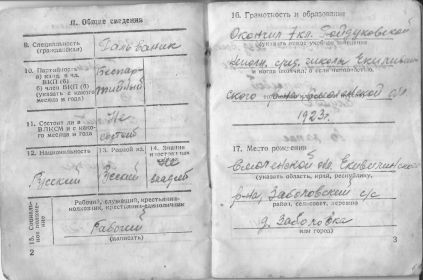 II. Общие сведения
9. Специальность (гражданская)
Гальваник
10. Партийность
а) канд. в чл. ВКП (б)
б) член ВКП (б)
(указать с какого месяца и года)
Беспар-
тийный
11. Состоит ли в ВЛКСМ и с какого месяца и года
Не
состоит
12. Национальность
Русский
13. Родной яз.
Русский
14. Знание
Не
владеет
15. Социальное положение
Рабочий, служащий, крестьянин-колхозник, крестьянин-единоличник
Рабочий
(вписать)
2
16. Грамотность и образование
Окончил 7 кл.
(указать какое учебное заведение
сред. школы
и когда окончил, о если неполностью,
ского
1923г.
17. Место рождения
Смоленской обл.
(указать область, край, республику,
р-на, Заболовский с/с
район, сельсовет, деревню
д. Заболовка
или город)
3